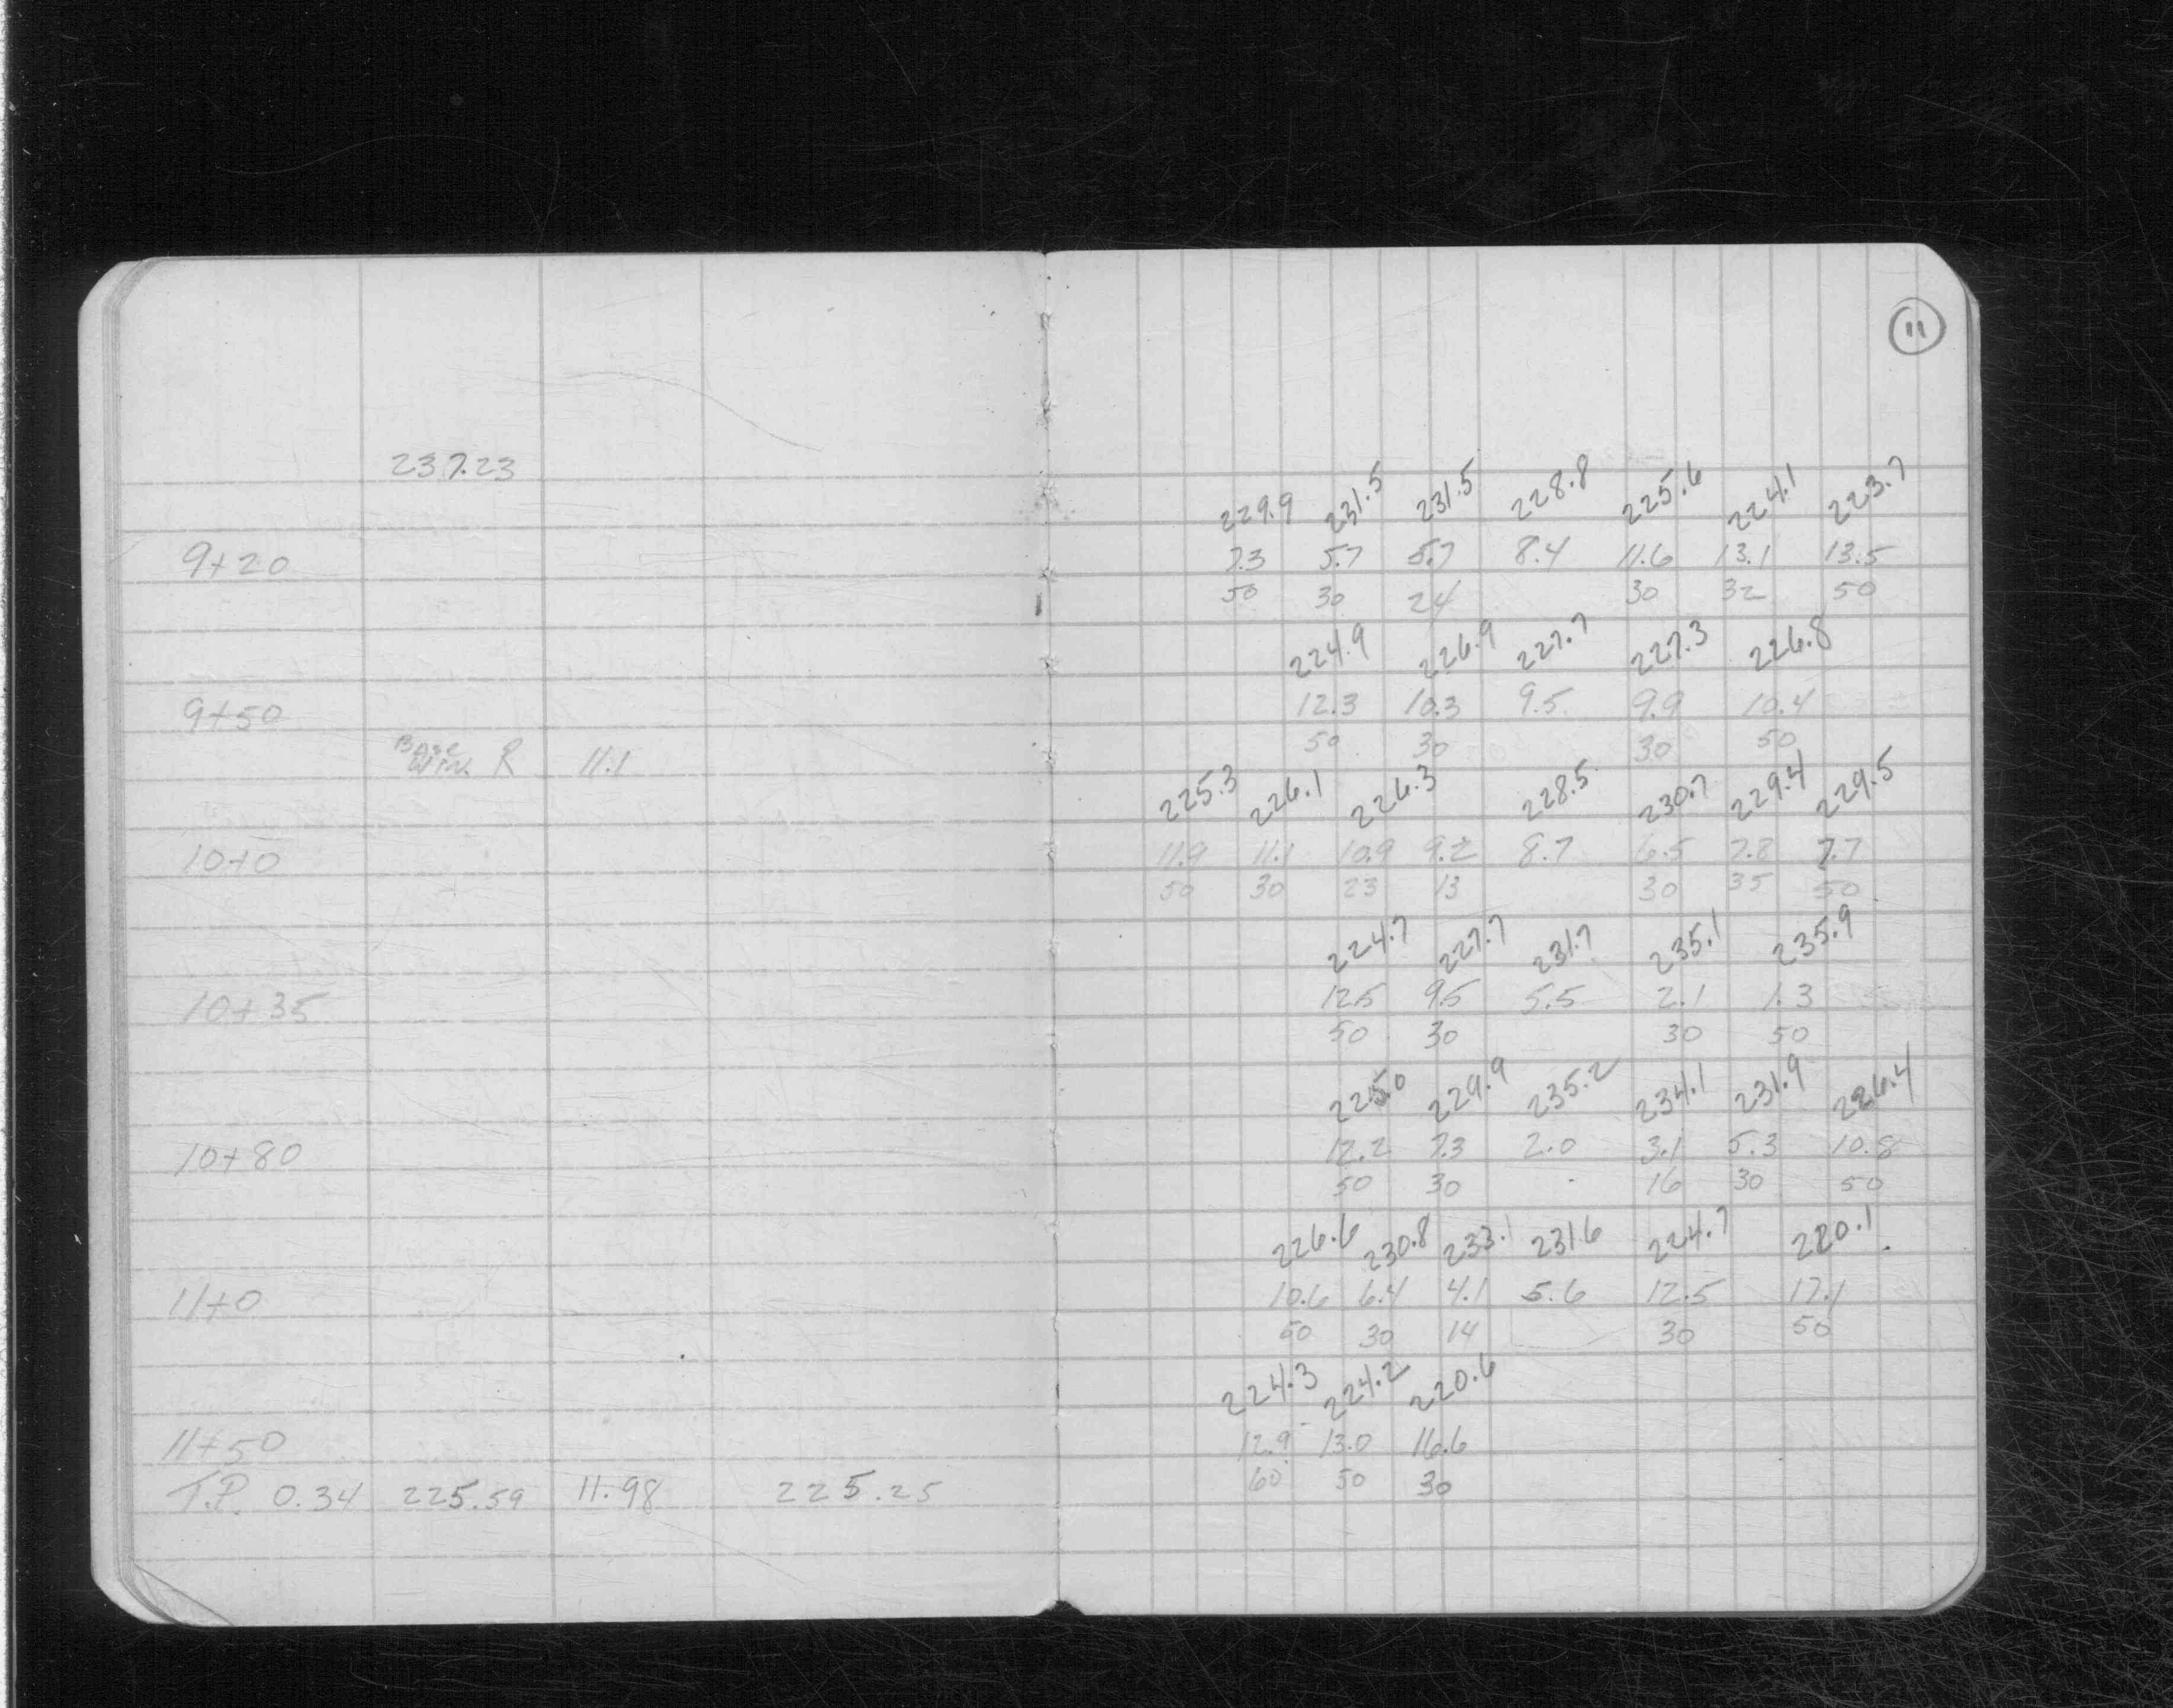 11
237.23
229.9 231.5 231.5 228.8 225.6 224.1 223.7
9+20 7.3 5.7 5.7 8.4 11.6 13.1 13.5
50 30 24 30 32 50
224.9 226.9 227.7 227.3 226.8
9+50 12.3 10.3 9.5 9.9 10.4
Base Win. R 11.1 50 30 30 50
225.3 226.1 226.3 228.5 230.7 229.4 229.5
10+0 11.9 11.1 10.9 9.2 8.7 6.5 7.8 7.7
50 30 23 13 30 35 50
224.7 227.7 231.7 235.1 235.9
10+35 12.5 9.5 5.5 2.1 1.3
50 30 30 50
225.0 229.9 235.2 234.1 231.9 226.4
10+80 12.2 7.3 2.0 3.1 5.3 10.8
50 30 16 30 50
226.6 230.8 233.1 231.6 224.7 220.1
11+0 10.6 6.4 4.1 5.6 12.5 17.1
50 30 14 30 50
224.3 224.2 220.6
11+50 12.9 13.0 16.6
T.P. 0.34 225.59 11.98 225.25 60 50 30